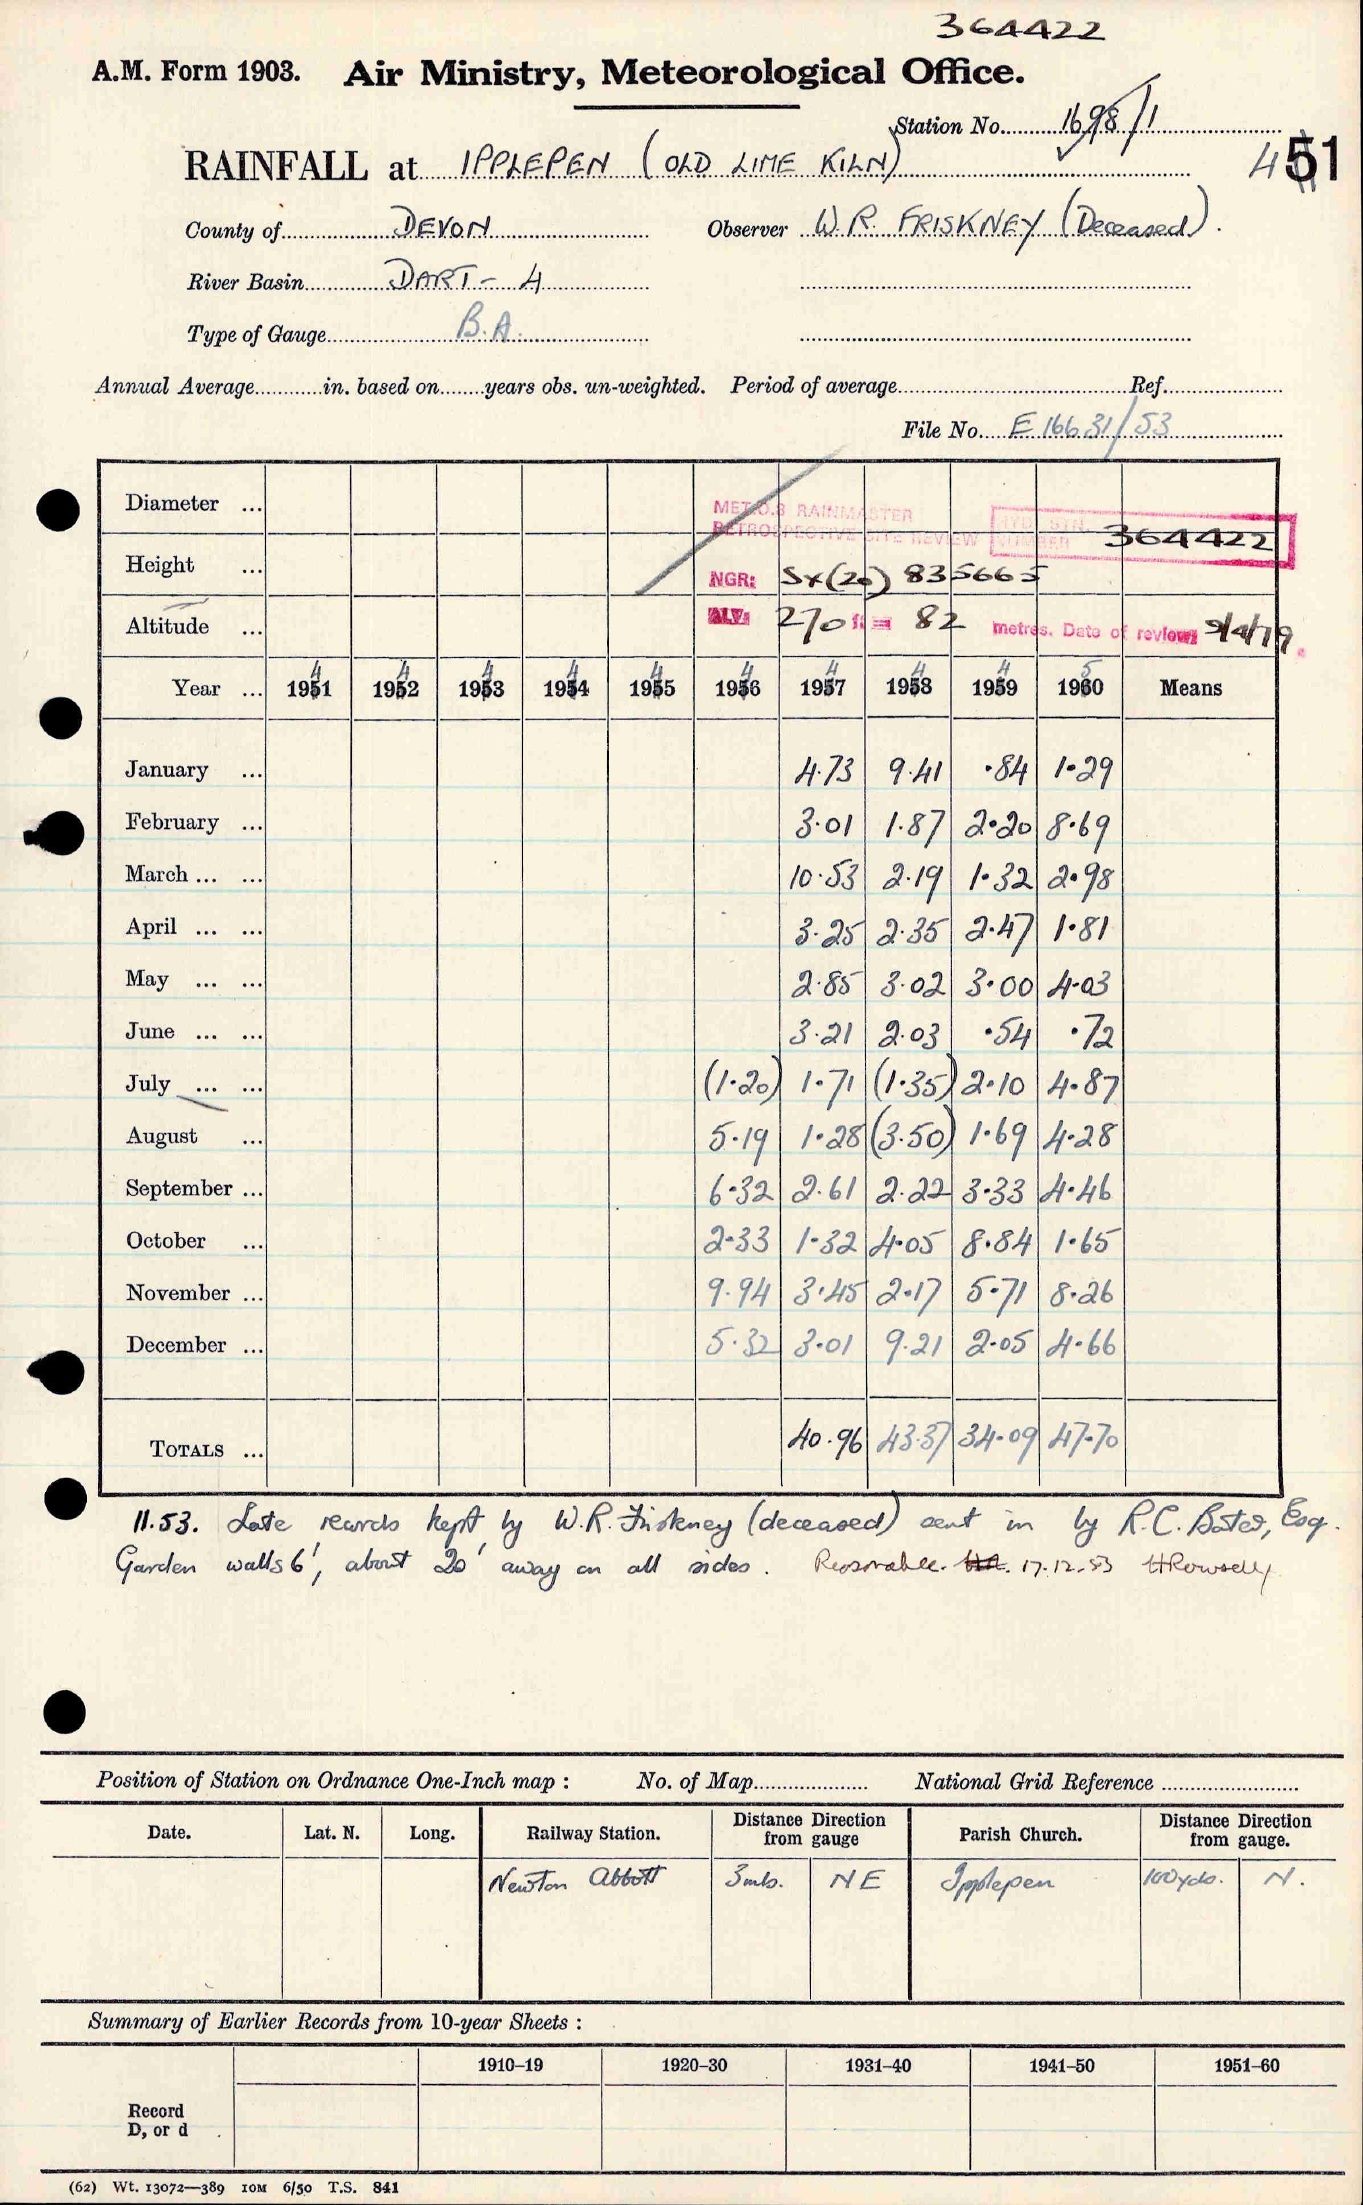 364422
A.M. Form 1903. Air Ministry, Meteorological Office.
Station No. 1698/1
RAINFALL at IPPLEPEN (OLD LIME KILN) 451
County of DEVON Observer W.R. FRISKNEY (Deceased).
River Basin DART - 4
Type of Gauge B.A.
Annual Average in. based on years obs. un-weighted. Period of average Ref.
File No. E 16631/53
Diameter ...
MET.O.8 RAINMASTER
RETROSPECTIVE SITE REVIEW HYD. STN. NUMBER 364422
Height ... NGR: SX(20) 835665
Altitude ... ALT: 270 ft = 82 metres. Date of review 9/4/79.
4 4 4 4 4 4 4 4 4 5
Year ... 1951 1952 1953 1954 1955 1956 1957 1958 1959 1960 Means
January ... 4.73 9.41 .84 1.29
February ... 3.01 1.87 2.20 8.69
March ... ... 10.53 2.19 1.32 2.98
April ... ... 3.25 2.35 2.47 1.81
May ... ... 2.85 3.02 3.00 4.03
June ... ... 3.21 2.03 .54 .72
July ... ... (1.20) 1.71 (1.35) 2.10 4.87
August ... 5.19 1.28 (3.50) 1.69 4.28
September ... 6.32 2.61 2.22 3.33 4.46
October ... 2.33 1.32 4.05 8.84 1.65
November ... 9.94 3.45 2.17 5.71 8.26
December ... 5.32 3.01 9.21 2.05 4.66
TOTALS ... 40.96 43.37 34.09 47.70
11.53. Late records kept by W.R. Friskney (deceased) sent in by R.C. Bates, Esq.
Garden walls 6', about 20' away on all sides. Reasonable. 17.12.53 HRowsell
Position of Station on Ordnance One-Inch map : No. of Map National Grid Reference
Date. Lat. N. Long. Railway Station. Distance Direction from gauge Parish Church. Distance Direction from gauge.
Newton Abbott 3mls. NE Ipplepen 100yds. N.
Summary of Earlier Records from 10-year Sheets :
1910–19 1920–30 1931–40 1941–50 1951–60
Record
D, or d
(62) Wt. 13072—389 10M 6/50 T.S. 841